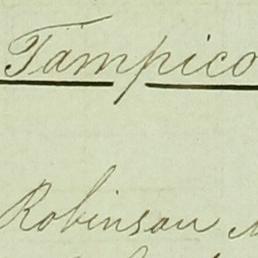 Tampico
Robinson